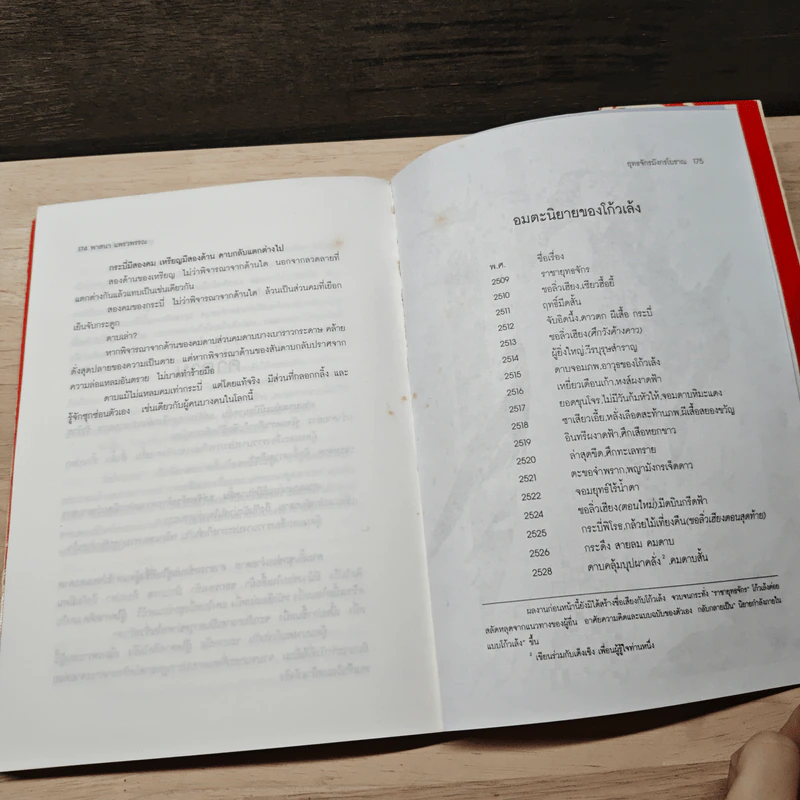 174 พาสนา แพรวพรรณ
กระบี่มีสองคม เหรียญมีสองด้าน ดาบกลับแตกต่างไป
สองด้านของเหรียญ ไม่ว่าพิจารณาจากด้านใด นอกจากลวดลายที่
แตกต่างกันแล้วแทบเป็นเช่นเดียวกัน
สองคมของกระบี่ ไม่ว่าพิจารณาจากด้านใด ล้วนเป็นส่วนคมที่เยือก
เย็นจับกระดูก
ดาบเล่า?
หากพิจารณาจากด้านของคมดาบส่วนคมดาบบางเบาราวกระดาษ คล้าย
ดังสุดปลายของความเป็นตาย แต่หากพิจารณาด้านของสันดาบกลับปราศจาก
ความล่อแหลมอันตราย ไม่บาดทำร้ายมือ
ดาบแม้ไม่แหลมคมเท่ากระบี่ แต่โดยแท้จริง มีส่วนที่กลอกกลิ้ง และ
รู้จักซุกซ่อนตัวเอง เช่นเดียวกับผู้คนบางคนในโลกนี้
ยุทธจักรมังกรโบราณ 175
อมตะนิยายของโก้วเล้ง
พ.ศ. ชื่อเรื่อง
2509 ราชายุทธจักร
2510 ชอลิ่วเฮียง,เซียวฮื้อยี้
2511 ฤทธิ์มีดสั้น
2512 จับอิดนึ้ง,ดาวตก ผีเสื้อ กระบี่
2513 ชอลิ่วเฮียง(ศึกวังค้างคาว)
2514 ผู้ยิ่งใหญ่,วีรบุรุษสำราญ
2515 ดาบจอมภพ,อาวุธของโก้วเล้ง
2516 เหยี่ยวเดือนเก้า,หงส์ผงาดฟ้า
2517 ยอดขุนโจร,ไม่มีวันก้มหัวให้,จอมดาบหิมะแดง
2518 ซาเสียวเอี้ย,หลั่งเลือดสะท้านภพ,ผีเสื้อสยองขวัญ
2519 อินทรีผงาดฟ้า,ศึกเสือหยกขาว
2520 ล่าสุดขีด,ศึกทะเลทราย
2521 ตะขอจำพราก,พญามังกรเจ็ดดาว
2522 จอมยุทธ์ไร้น้ำตา
2524 ชอลิ่วเฮียง(ตอนใหม่),มีดบินกรีดฟ้า
2525 กระบี่พิโรธ,กล้วยไม้เที่ยงคืน(ชอลิ่วเฮียงตอนสุดท้าย)
2526 กระดึง สายลม คมดาบ
2528 ดาบคลุ้มบุปผาคลั่ง ²,คมดาบสั้น
ผลงานก่อนหน้านี้ยังมิได้สร้างชื่อเสียงกับโก้วเล้ง จวบจนกระทั่ง "ราชายุทธจักร" โก้วเล้งค่อย
สลัดหลุดจากแนวทางของผู้อื่น อาศัยความคิดและแบบฉบับของตัวเอง กลับกลายเป็น" นิยายกำลังภายใน
แบบโก้วเล้ง" ขึ้น
² เขียนร่วมกับเต็งเชิง เพื่อนผู้รู้ใจท่านหนึ่ง